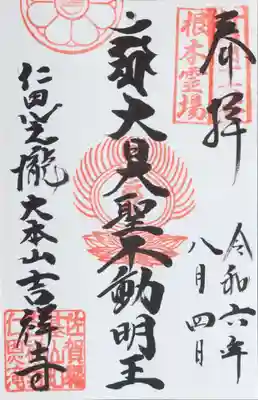 奉拝
根本霊場
令和六年
八月四日
大日大聖不動明王
仁田 大本山吉祥寺
佐賀縣